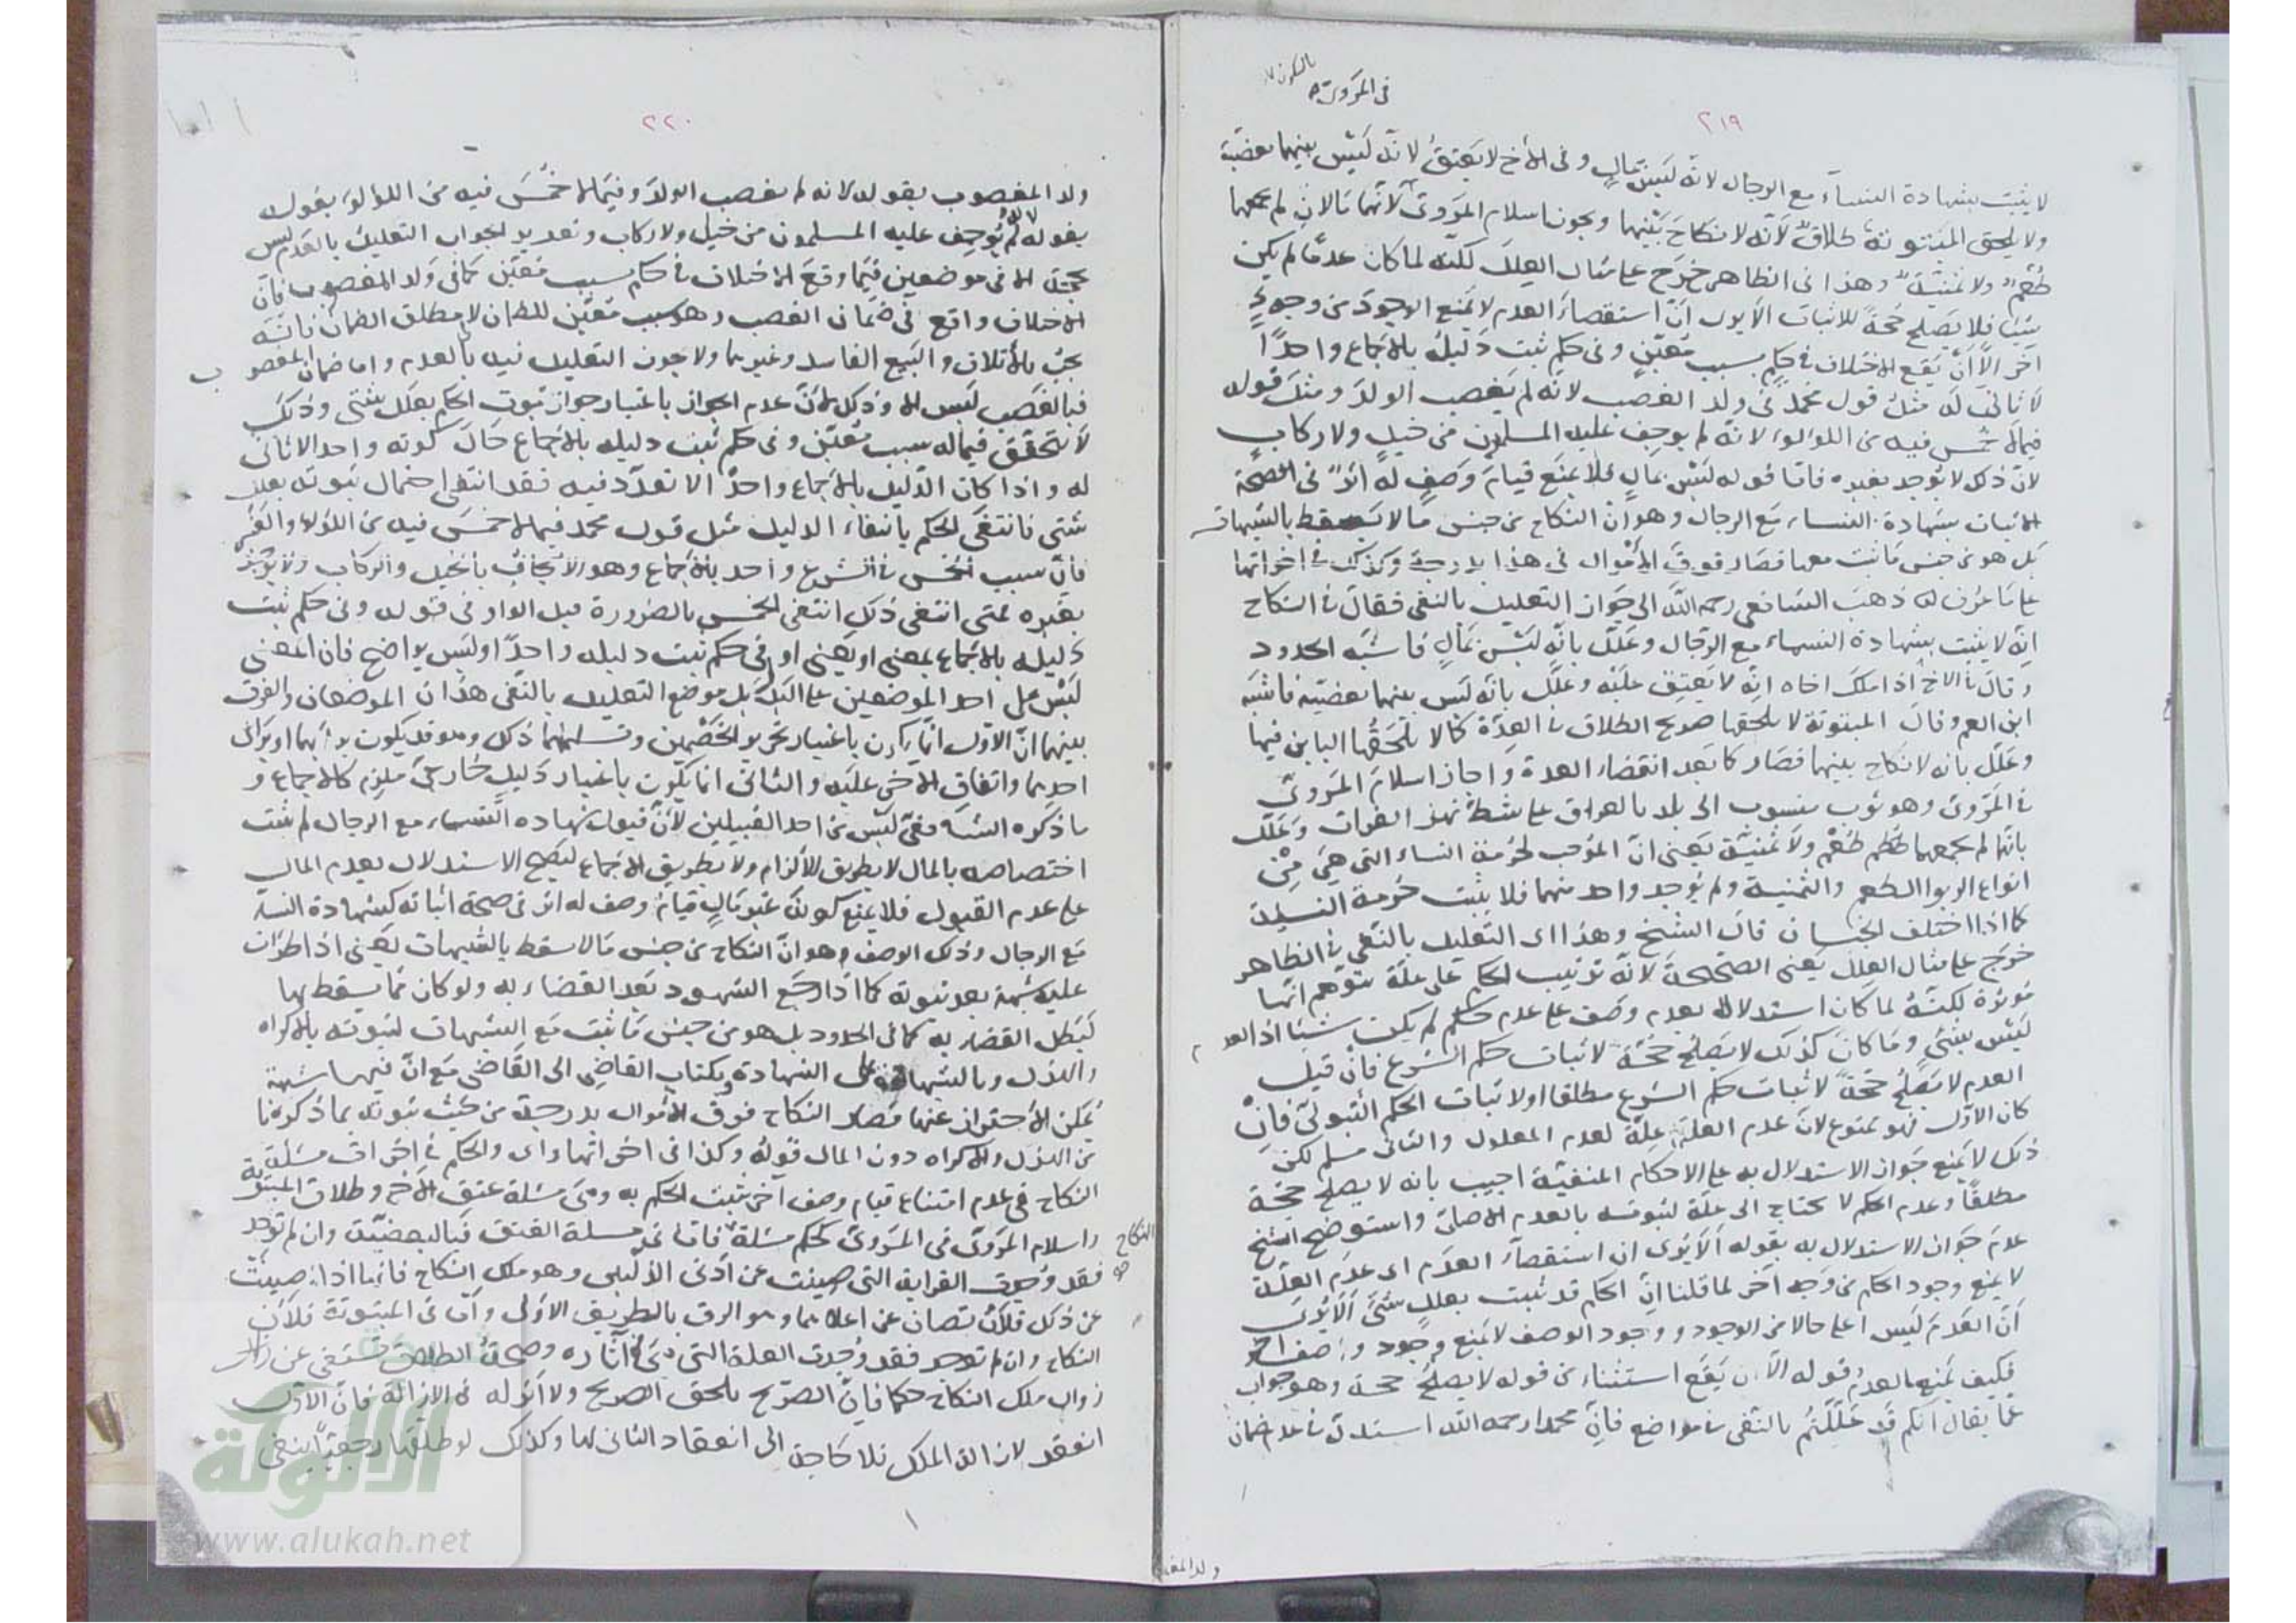 بالسكون
في المروي
٢١٩
لا يثبت بشهادة النساء مع الرجال لانه ليس بمال وفي الاخ لا يعتق لانه ليس بينهما بعضية
ولا يلحق المبتوتة طلاق لانه لا نكاح بينهما ويجوز اسلام المروي لانهما مالان لم يجمعهما
طعم ولا ثمنية وهذا في الظاهر خرج على مثال العلل لكنه لما كان عدما لم يكن
شيئا فلا يصلح حجة للاثبات الا يرى ان استقصاء العدم لا يمنع الوجود من وجه
اخر الا ان يقع الاختلاف في حكم بسبب معين وفي حكم ثبت دليله بالاجماع واحدا
لا ثاني له مثل قول محمد في ولد الغصب لانه لم يغصب الولد ومثل قوله
فيما لا خمس فيه من اللؤلؤ لانه لم يوجف عليه المسلمون من خيل ولا ركاب
لان ذلك لا يوجد بغيره فاما قوله ليس بمال فلا يمنع قيام وصف له اثر في الصحة
الاثبات بشهادة النساء مع الرجال وهو ان النكاح من جنس ما لا يسقط بالشبهات
بل هو من جنس ما ثبت معها فصار فوق الاموال في هذا بدرجة وكذلك في اخواتها
على ما عرف له ذهب الشافعي رحمه الله الى جواز التعليل بالنفي فقال في النكاح
انه لا يثبت بشهادة النساء مع الرجال وعلل بانه ليس بمال فاشبه الحدود
وقال في الاخ اذا ملك اخاه انه لا يعتق عليه وعلل بانه ليس بينهما بعضية فاشبه
ابن العم وقال المبتوتة لا يلحقها صريح الطلاق في العدة كما لا يلحقها البائن فيها
وعلل بانه لا نكاح بينهما فصار كما بعد انقضاء العدة واجاز اسلام المروي
في المروي وهو ثوب منسوب الى بلد بالعراق على شط نهر الفرات وعلل
بانهما لم يجمعهما طعم ولا ثمنية يعني ان الموجب لحرمة النساء التي هي من
انواع الربوا الطعم والثمنية ولم يوجد واحد منهما فلا يثبت حرمة النسيئة
كما اذا اختلف الجنسان قال الشيخ وهذا اي التعليل بالنفي في الظاهر
خرج على مثال العلل يعني الصحيحة لانه ترتيب الحكم على علة يتوهم انها
موثرة لكنه لما كان استدلالا بعدم وصف على عدم حكم لم يكن شيئا اذ العدم
ليس بشيء وما كان كذلك لا يصلح حجة لاثبات حكم الشرع فان قيل
العدم لا يصلح حجة لاثبات حكم الشرع مطلقا او لاثبات الحكم الثبوتي فان
كان الاول فهو ممنوع لان عدم العلة علة لعدم المعلول والثاني مسلم لكن
ذلك لا يمنع جواز الاستدلال به على الاحكام المنفية اجيب بانه لا يصلح حجة
مطلقا وعدم الحكم لا يحتاج الى علة لثبوته بالعدم الاصلي واستوضح الشيخ
عدم جواز الاستدلال به بقوله الا يرى ان استقصاء العدم اي عدم العلة
لا يمنع وجود الحكم من وجه آخر لما قلنا ان الحكم قد يثبت بعلل شتى الا يرى
ان العدم ليس اعلى حالا من الوجود ووجود الوصف لا يمنع وجود وصف اخر
فكيف يمنع العدم قوله الا ان يقع استثناء من قوله لا يصلح حجة وهو جواب
عما يقال انكم قد عللتم بالنفي في مواضع فان محمدا رحمه الله استدل في عدم ضمان
ولد المغصوب
٢٢٠
ولد المغصوب بقوله لانه لم يغصب الولد وفيما لا خمس فيه من اللؤلؤ بقوله
بقوله لانه لم يوجف عليه المسلمون من خيل ولا ركاب وتقدير الجواب التعليل بالعدم ليس
بحجة الا في موضعين فيما وقع الاختلاف في حكم بسبب معين كما في ولد المغصوب فان
الاختلاف واقع في ضمان الغصب وهو سبب معين للضمان لا مطلق الضمان فانه
يجب بالاتلاف والبيع الفاسد وغيرهما ولا يجوز التعليل فيه بالعدم واما ضمان المغصوب
فبالغصب ليس الا وذلك لان عدم الجواز باعتبار جواز ثبوت الحكم بعلل شتى وذلك
لا يتحقق فيما له سبب معين وفي حكم ثبت دليله بالاجماع حال كونه واحدا لا ثاني
له واذا كان الدليل بالاجماع واحدا لا تعدد فيه فقد انتفى احتمال ثبوته بعلل
شتى فانتفى الحكم بانتفاء الدليل مثل قول محمد فيما لا خمس فيه من اللؤلؤ والعنبر
فان سبب الخمس في الشرع واحد بالاجماع وهو الايجاف بالخيل والركاب ولا يوجد
بغيره فمتى انتفى ذلك انتفى الخمس بالضرورة قيل الواو في قوله وفي حكم ثبت
دليله بالاجماع بمعنى او يعني او في حكم ثبت دليله واحدا وليس بواضح فان المعنى
ليس على احد الموضعين على البدل بل موضع التعليل بالنفي هذان الموضعان والفرق
بينهما ان الاول انما يكون باعتبار تحرير الخصمين وتسليمهما ذلك وهو قد يكون برأيهما او برأي
احدهما واتفاق الاخر عليه والثاني انما يكون باعتبار دليل خارجي ملزم كالاجماع و
ما ذكره الشافعي ليس من احد القبيلين لان قبول شهادة النساء مع الرجال لم يثبت
اختصاصه بالمال لا بطريق الالزام ولا بطريق الاجماع ليصح الاستدلال بعدم المال
على عدم القبول فلا يمنع كونه غير مال قيام وصف له اثر في صحة اثباته كشهادة النساء
مع الرجال وذلك الوصف وهو ان النكاح من جنس ما لا يسقط بالشبهات يعني اذا طرأت
عليه شبهة بعد ثبوته كما اذا رجع الشهود بعد القضاء به ولو كان مما يسقط بها
لبطل القضاء به كما في الحدود بل هو من جنس ما ثبت مع الشبهات لثبوته بالاكراه
والهزل وبالشهادة على الشهادة وبكتاب القاضي الى القاضي مع ان فيها شبهة
يمكن الاحتراز عنها فصار النكاح فوق الاموال بدرجة من حيث ثبوته بما ذكرنا
من الهزل والاكراه دون المال قوله وكذا في اخواتها اي والحكم في اخوات مسئلة
النكاح في عدم امتناع قيام وصف آخر يثبت الحكم به وهي مسئلة عتق الاخ وطلاق المبتوتة
واسلام المروي في المروي كحكم مسئلة النكاح فاما في مسئلة العتق فبالبعضية وان لم توجد
فقد وجدت القرابة التي صينت عن ادنى الذلين وهو ملك النكاح فانها اذا صينت
عن ذلك فلان تصان عن اعلاهما وهو الرق بالطريق الاولى واما في المبتوتة فلان
النكاح وان لم توجد فقد وجدت العلة التي هي آثاره وصحة الطلاق تستغني عن
زوال ملك النكاح حكما فان الصريح يلحق الصريح ولا اثر له في الازالة فان الاول
انعقد لازالة الملك فلا حاجة الى انعقاد الثاني لها وكذلك لو طلقها رجعيا ينفى
الألوكة
www.alukah.net